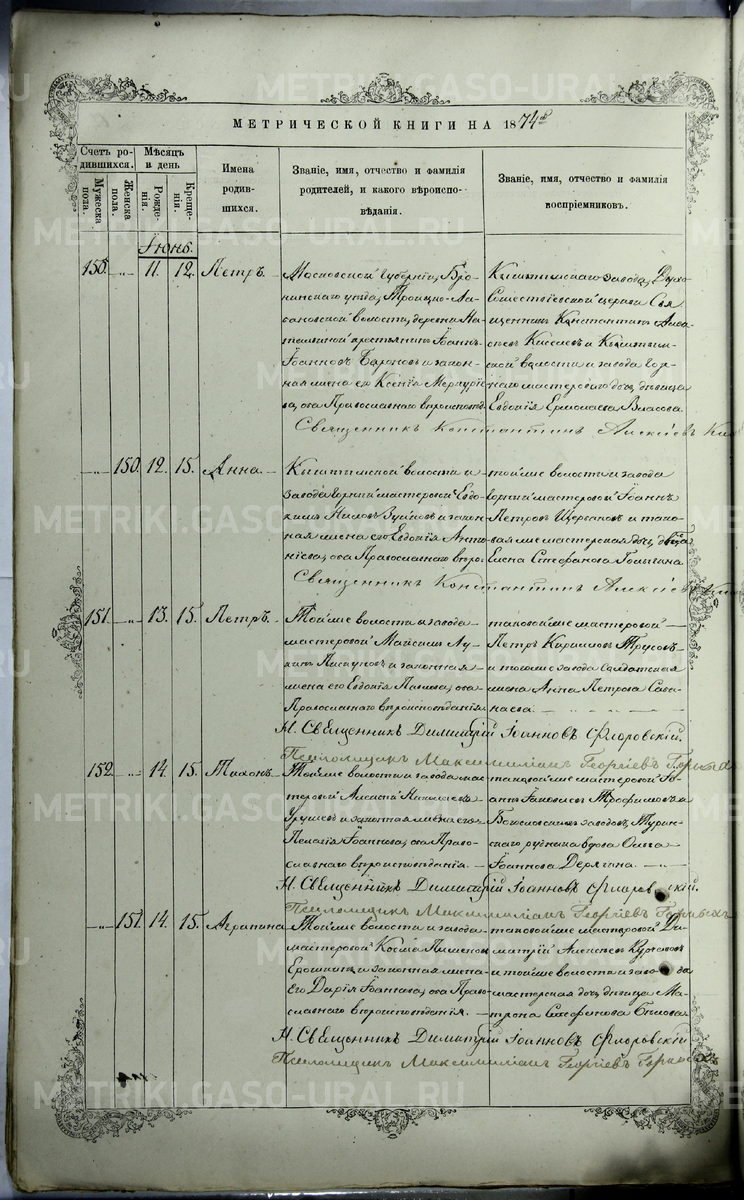 МЕТРИЧЕСКОЙ КНИГИ НА 1874й
Счетъ родившихся.
Мужеска пола.
Женска пола.
Мѣсяцъ и день
Рожденія.
Крещенія.
Имена родившихся.
Званіе, имя, отчество и фамилія
родителей, и какого вѣроиспо-
вѣданія.
Званіе, имя, отчество и фамилія
воспріемниковъ.
Іюнь.
150. 11. 12. Петръ.
Московской Губерніи, Бро-
ницкаго уѣзда, Троицко-
волости, деревни
крестьянинъ Іоаннъ
Іоанновъ и закон-
ная жена его Ксенія Меркурі-
ева, оба Православнаго вѣроисповѣд.
Кыштымскаго завода, Духо-
сошествіевской церкви Свя-
щенникъ Константинъ Алек-
сѣевъ и Кыштым-
ской волости и завода гор-
наго мастероваго дочь, дѣвица
Евдокія Ермолаева Власова
Священникъ Константинъ Алексіевъ
150. 12. 15. Анна.
Кыштымской волости и
завода горный мастеровой Евдо-
кимъ Ниловъ Зуйковъ и закон-
ная жена его Евдокія Анто-
ніева, оба Православнаго вѣро-
той же волости и завода
горный мастеровой Іоаннъ
Петровъ Щербаковъ и тако-
вая же мастерская дочь, дѣвица
Елена Стефанова
Священникъ Константинъ Алексіевъ
151. 13. 15. Петръ.
Той же волости и завода
мастеровой Максимъ Лу-
кинъ Пискуновъ и законная
жена его Евдокія, оба
Православнаго вѣроисповѣданія.
таковой же мастеровой
Петръ Карниловъ Трусовъ
и того же завода солдатская
жена Анна Петрова Сава-
наева.
И. Священникъ Димитрій Іоанновъ Флоровскій.
Псаломщикъ Максимиліанъ Георгіевъ
152. 14. 15. Тихонъ.
Той же волости и завода мас-
теровой Алексій Николаевъ
и законная жена его
Пелагія Іоаннова, оба Право-
славнаго вѣроисповѣданія.
таковой же мастеровой Іо-
аннъ Іаковлевъ Трофимовъ и
Богословскихъ заводовъ, Турин-
скаго рудника вдова Ольга
Іоаннова Дерягина.
И. Священникъ Димитрій Іоанновъ Флоровскій.
Псаломщикъ Максимиліанъ Георгіевъ
151. 14. 15. Агрипина
Той же волости и завода
мастеровой Косма Пименовъ
Ерошкинъ и законная жена
его Дарія Іоаннова, оба Право-
славнаго вѣроисповѣданія.
таковой же мастеровой Ди-
митрій Алексѣевъ Курчавовъ
и той же волости и завода
мастерская дочь, дѣвица Ма-
трона Стефанова
И. Священникъ Димитрій Іоанновъ Флоровскій
Псаломщикъ Максимиліанъ Георгіевъ
METRIKI.GASO-URAL.RU